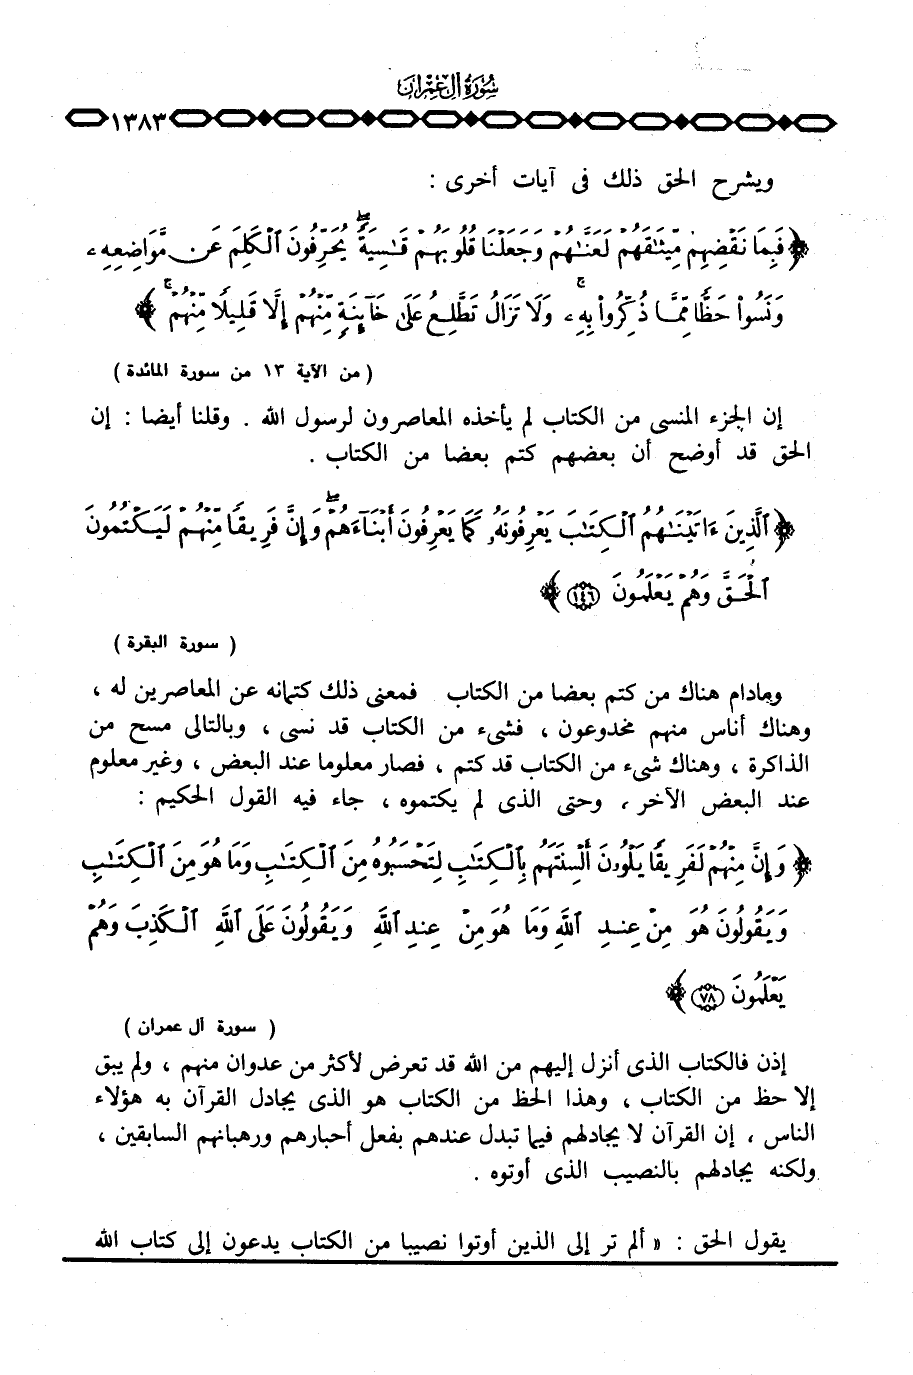 سُورَةُ آلِ عِمْرَانَ
١٣٨٣
ويشرح الحق ذلك فى آيات أخرى :
﴿ فَبِمَا نَقْضِهِم مِّيثَٰقَهُمْ لَعَنَّٰهُمْ وَجَعَلْنَا قُلُوبَهُمْ قَٰسِيَةً ۖ يُحَرِّفُونَ ٱلْكَلِمَ عَن مَّوَاضِعِهِۦ
وَنَسُوا۟ حَظًّا مِّمَّا ذُكِّرُوا۟ بِهِۦ ۚ وَلَا تَزَالُ تَطَّلِعُ عَلَىٰ خَآئِنَةٍ مِّنْهُمْ إِلَّا قَلِيلًا مِّنْهُمْ ۚ ﴾
( من الآية ١٣ من سورة المائدة )
إن الجزء المنسى من الكتاب لم يأخذه المعاصرون لرسول الله . وقلنا أيضا : إن
الحق قد أوضح أن بعضهم كتم بعضا من الكتاب .
﴿ ٱلَّذِينَ ءَاتَيْنَٰهُمُ ٱلْكِتَٰبَ يَعْرِفُونَهُۥ كَمَا يَعْرِفُونَ أَبْنَآءَهُمْ ۖ وَإِنَّ فَرِيقًا مِّنْهُمْ لَيَكْتُمُونَ
ٱلْحَقَّ وَهُمْ يَعْلَمُونَ ١٤٦ ﴾
( سورة البقرة )
ومادام هناك من كتم بعضا من الكتاب فمعنى ذلك كتمانه عن المعاصرين له ،
وهناك أناس منهم مخدوعون ، فشىء من الكتاب قد نسى ، وبالتالى مسح من
الذاكرة ، وهناك شىء من الكتاب قد كتم ، فصار معلوما عند البعض ، وغير معلوم
عند البعض الآخر ، وحتى الذى لم يكتموه ، جاء فيه القول الحكيم :
﴿ وَإِنَّ مِنْهُمْ لَفَرِيقًا يَلْوُۥنَ أَلْسِنَتَهُم بِٱلْكِتَٰبِ لِتَحْسَبُوهُ مِنَ ٱلْكِتَٰبِ وَمَا هُوَ مِنَ ٱلْكِتَٰبِ
وَيَقُولُونَ هُوَ مِنْ عِندِ ٱللَّهِ وَمَا هُوَ مِنْ عِندِ ٱللَّهِ وَيَقُولُونَ عَلَى ٱللَّهِ ٱلْكَذِبَ وَهُمْ
يَعْلَمُونَ ٧٨ ﴾
( سورة آل عمران )
إذن فالكتاب الذى أنزل إليهم من الله قد تعرض لأكثر من عدوان منهم ، ولم يبق
إلا حظ من الكتاب ، وهذا الحظ من الكتاب هو الذى يجادل القرآن به هؤلاء
الناس ، إن القرآن لا يجادلهم فيما تبدل عندهم بفعل أحبارهم ورهبانهم السابقين ،
ولكنه يجادلهم بالنصيب الذى أوتوه .
يقول الحق : « ألم تر إلى الذين أوتوا نصيبا من الكتاب يدعون إلى كتاب الله